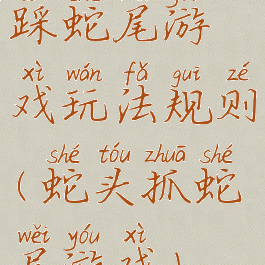 踩蛇尾游
xì wán fǎ guī zé
戏玩法规则
shé tóu zhuā shé
(蛇头抓蛇
wěi yóu xì
尾游戏)